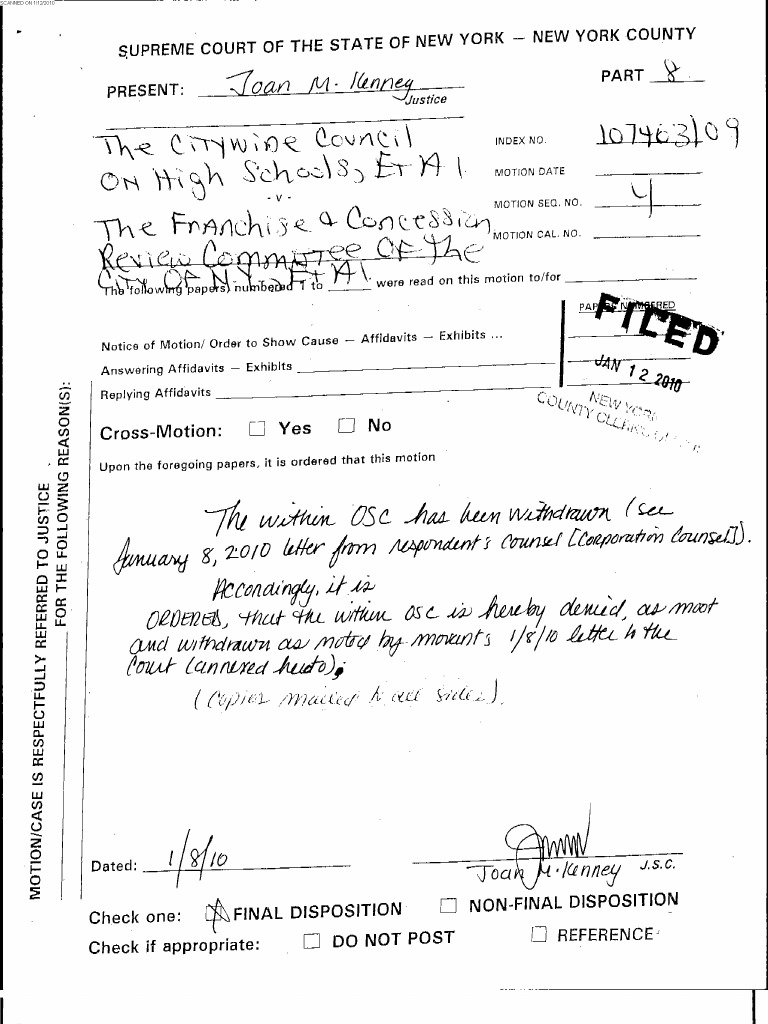 SCANNED ON 1/12/2010
SUPREME COURT OF THE STATE OF NEW YORK — NEW YORK COUNTY
PRESENT: Joan M. Kenney
Justice
PART 8
The Citywide Council
on High Schools, Et Al.
- v -
The Franchise & Concession
Review Committee Of The
City Of NY, Et Al.
INDEX NO. 107463/09
MOTION DATE
MOTION SEQ. NO. 4
MOTION CAL. NO.
The following papers, numbered 1 to were read on this motion to/for
PAPERS NUMBERED
Notice of Motion/ Order to Show Cause — Affidavits — Exhibits ...
Answering Affidavits — Exhibits
Replying Affidavits
FILED
JAN 12 2010
NEW YORK
COUNTY CLERK'S OFFICE
Cross-Motion: Yes No
Upon the foregoing papers, it is ordered that this motion
The within OSC has been withdrawn (see
January 8, 2010 letter from respondent's counsel [Corporation Counsel]).
Accordingly, it is
ORDERED, that the within OSC is hereby denied, as moot
and withdrawn as noted by movant's 1/8/10 letter to the
Court (annexed hereto).
(Copies mailed to all sides).
MOTION/CASE IS RESPECTFULLY REFERRED TO JUSTICE
FOR THE FOLLOWING REASON(S):
Dated: 1/8/10
Joan M. Kenney J.S.C.
Check one: FINAL DISPOSITION NON-FINAL DISPOSITION
Check if appropriate: DO NOT POST REFERENCE